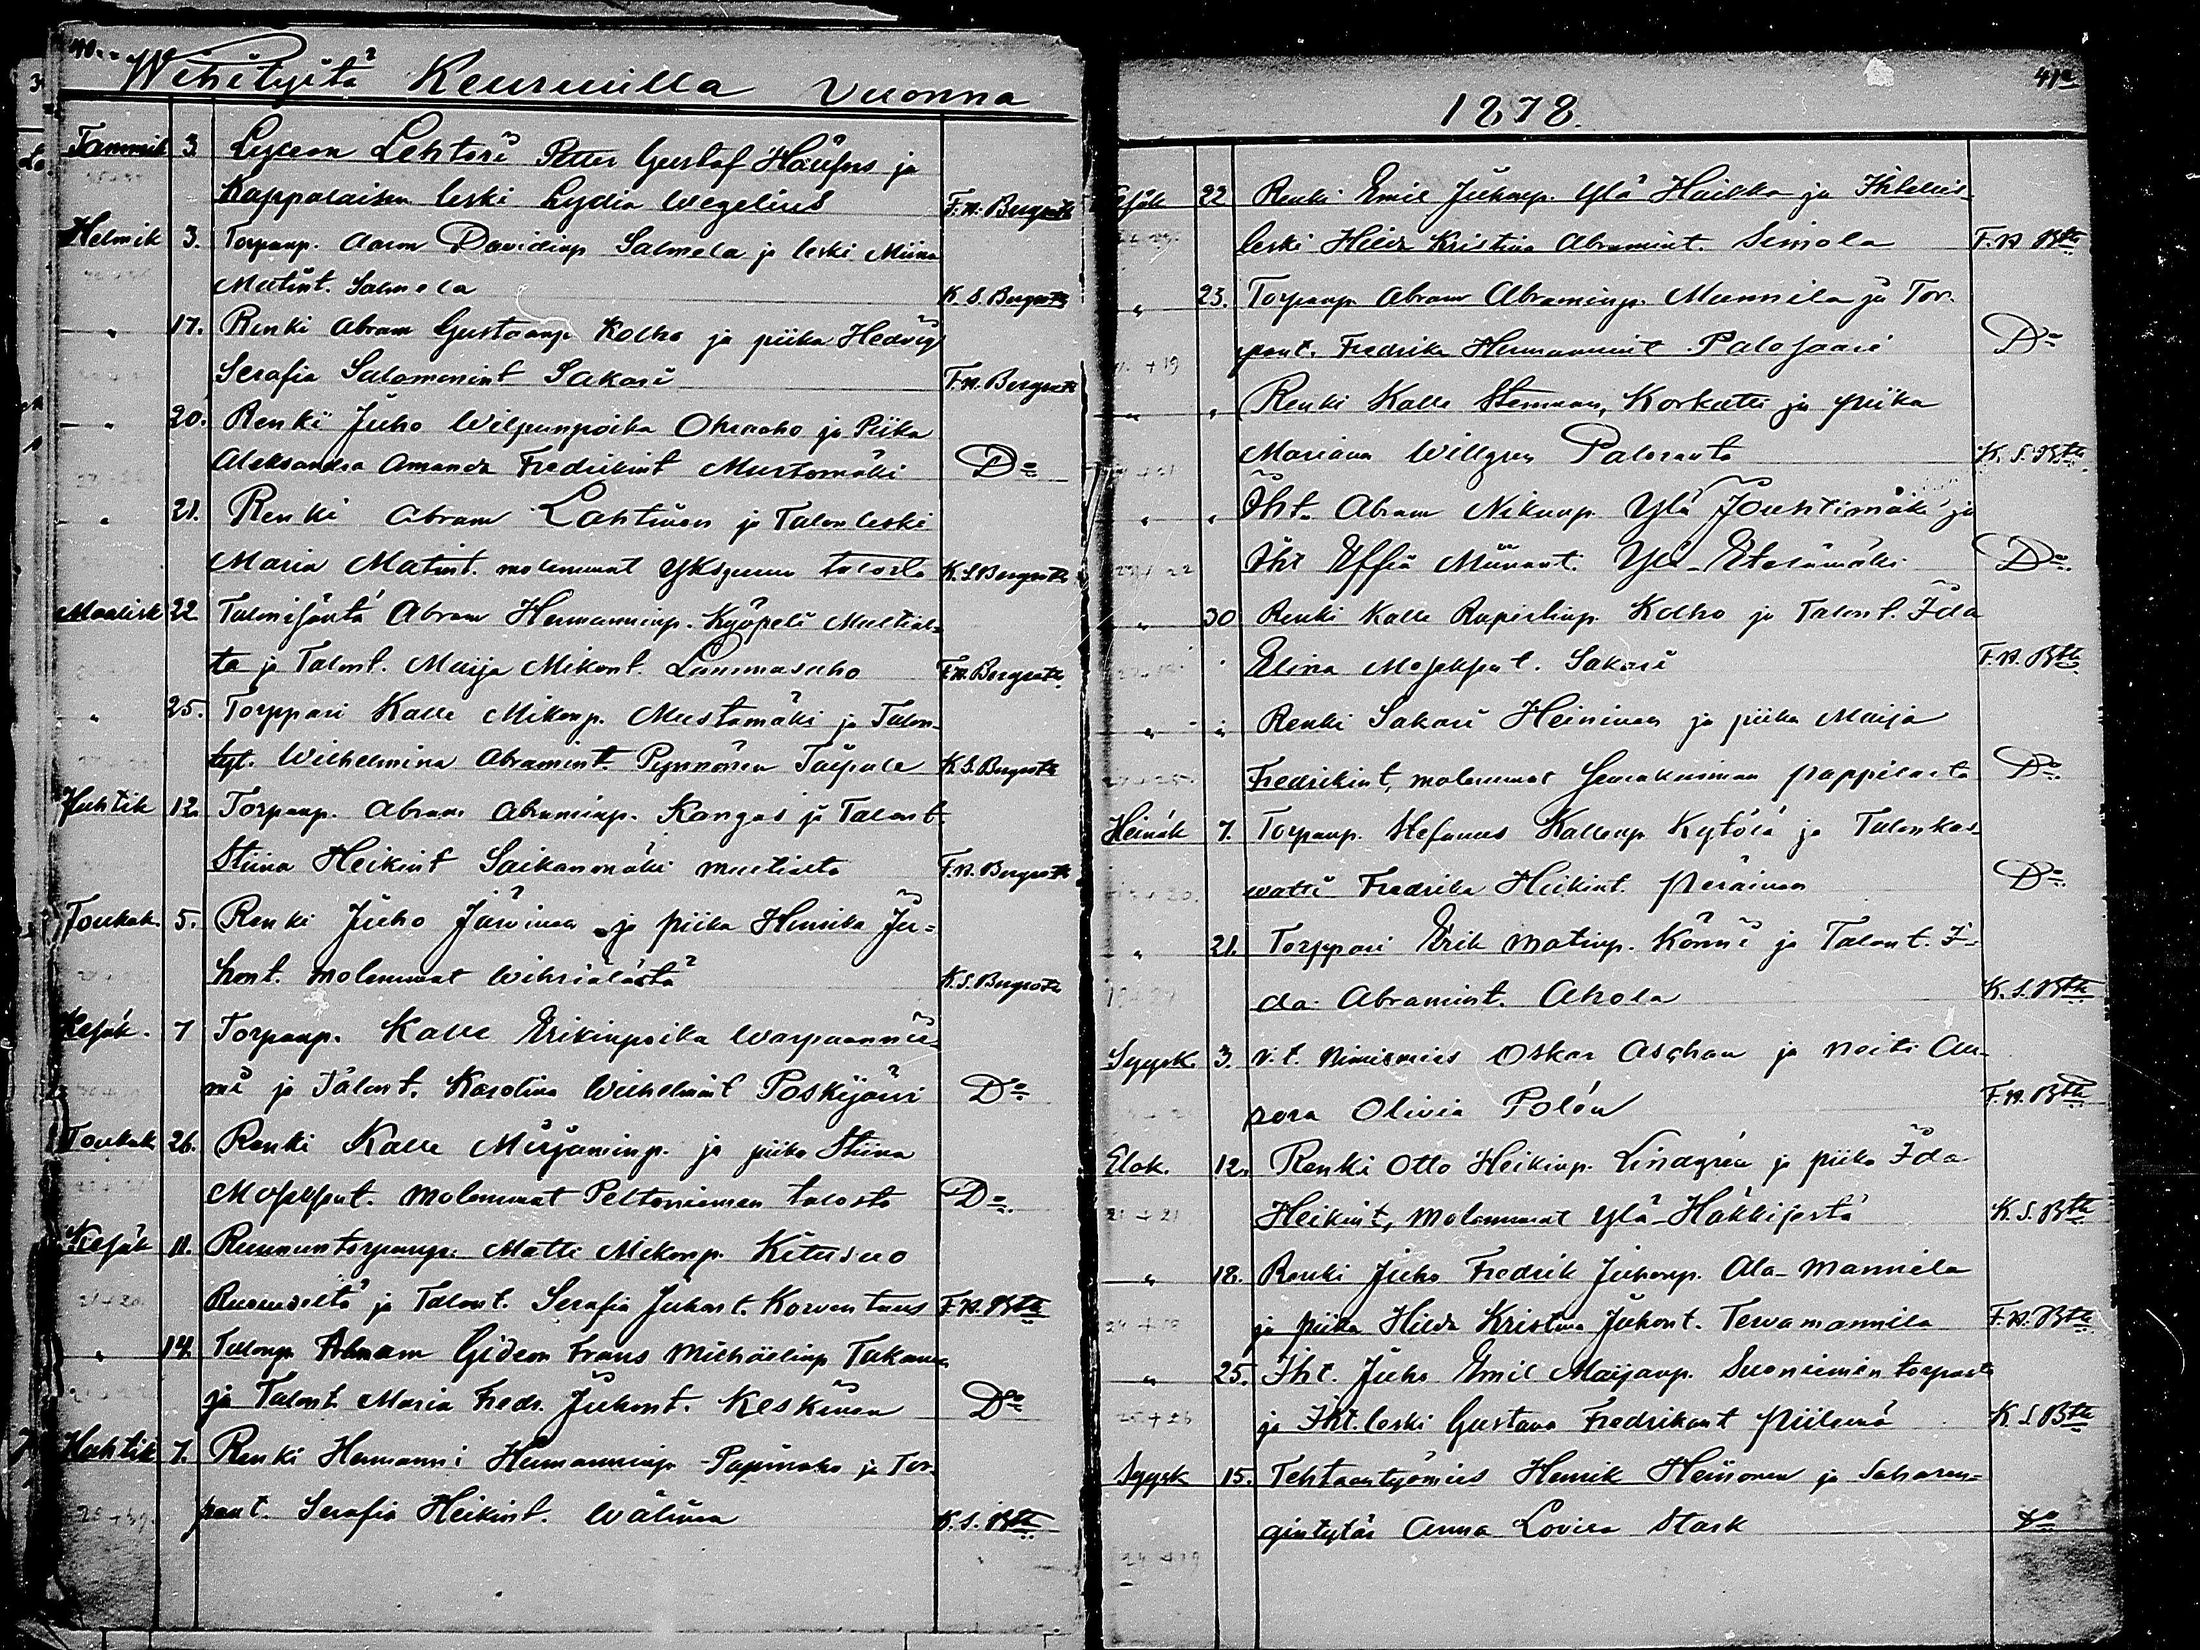 40.
Wihityitä Keuruulla vuonna
Tammik 3. Lyseon Lehtori Petter Gustaf Häufors ja
Kappalaisen leski Lydia Wegelius F.W. Bergroth
Helmik 3. Torpanp. Aaron Davidinp Salmela ja leski Miina
Matint. Salmela K. S. Bergroth
" 17. Renki Abram Gustaanp Kolho ja piika Hedvig
Serafia Salomonint Sakari F.W. Bergroth
" 20. Renki Juho Wilpunpoika Ohraaho ja Piika
Aleksandra Amanda Fredrikint Mustomäki Do
" 21. Renki Abram Lahtinen ja Talon leski
Maria Matint. molemmat Ykspuun talosta K.S Bergroth
Maalisk 22 Talonisäntä Abram Hermanninp. Käöpeli Multial-
ta ja Talont. Maija Mikont. Lammasaho F.W. Bergroth
" 25. Torppari Kalle Mikonp. Mustamäki ja Talon-
tyt. Wilhelmina Abramint. Pynnönen Taipale K.S. Bergroth
Huhtik 12. Torpanp. Abram Abraminp. Kangas ja Talont-
Stiina Heikint Saikanmäki multialta F.W. Bergroth
Toukok. 5. Renki Juho Järvinen ja piika Henrika Ju=
hont. molemmat Wihriälästä K.S. Bergroth
Kesäk. 7 Torpanp. Kalle Erikinpoika Warpaannie-
mi ja Talont. Karolina Wilhelmint Poskijärvi Do
Toukok 26. Renki Kalle Mirjaminp. ja piika Stiina
Mosespnt. molemmat Peltoniemen talosta Do
Kesäk 11. Ruununtorpanp. Matti Mikonp. Kitusuo
Ruovedeltä ja Talont. Serafia Juhont. Korventaus F.W. Bth
21+20
" 14. Talonp Abram Gideon Frans Mikaelinp Takanen
ja Talont Maria Fredr. Juhont. Keskinen Do
Huhtik 7. Renki Hermanni Hermanninp Papinaho ja Tor-
pant. Serafia Heikint. Wälinen K.S. Bth
41
1878.
Kesäk 22 Renki Emil Juhonp. Ylä Haikka ja Itsellis-
leski Hilda Kristina Abramint. Simola F.W Bth
" 23. Torpanp Abram Abraminp. Mannila ja Tor-
pant. Fredrika Hermannint Palosaari Do
" " Renki Kalle Stenman, Korkatti ja piika
Mariana Willgren Paloranta K. S. Bth
" " Iht. Abram Nikunp Ylä Jouhtimäki ja
Iht Effia Miinant. Ylä-Etelämäki Do
" 30 Renki Kalle Rupertinp. Kolho ja Talont. Ida
Elina Mosespnt. Sakari F.W. Bth
" " Renki Sakari Heininen ja piika Maija
Fredrikint, molemmat Seurakunnan pappilasta Do
Heinäk 7. Torpanp. Stefanus Kallenp Kytölä ja Talonkas-
watti Fredrika Heikint. Peräinen Do
" 21. Torppari Erik Matinp. Könni ja Talont. I-
da Abramint. Ahola K. S. Bth
Syysk. 3. v.t. Nimismies Oskar Aschan ja neiti Au-
rora Olivia Polón F.W. Bth
Elok. 12. Renki Otto Heikinp. Lindgrén ja piika Ida
Heikint, molemmat Ylä-Häkkisestä K. S. Bth
21+21
" 18. Renki Juho Fredrik Juhonp. Ala-Mannila
ja piika Hilda Kristina Juhont. Tervamannila F.W. Bth
" 25. Iht. Juho Emil Maijanp. Suoniemen torpasta
ja Iht. leski Gustava Fredrikant Piilinä K.S Bth
Syysk 15. Tehtaantyömies Henrik Heinonen ja Saharen=
gintytär Anna Lovisa Stark Do
24+19